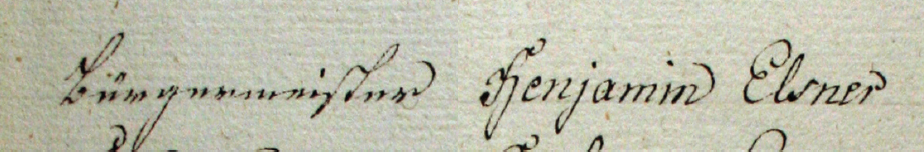 Bürgermeister Benjamin Elsner